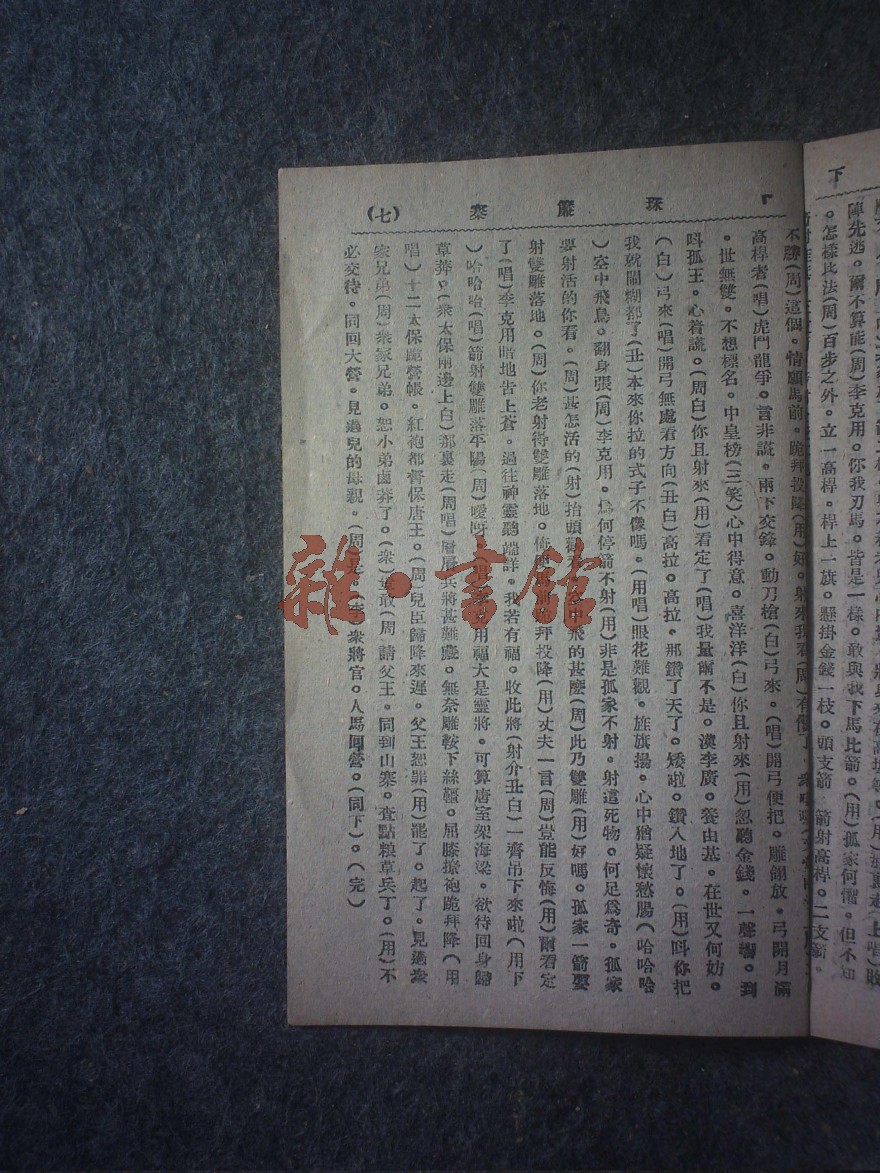 下
陣先逃。爾不算能(周)李克用。你我刀馬。皆是一樣。敢與我下馬比箭。(用)孤家何懼。但不知
。怎樣比法(周)百步之外。立一高桿。桿上一旗。懸掛金錢一枝。頭支箭 箭射高桿。二支箭。
珠簾寨
(七)
不勝(周)這個。情願馬前。跪拜投降(用)好。射來我看(周)有僭了。
高桿者(唱)虎鬥龍爭。言非謊。兩下交鋒。動刀槍(白)弓來。(唱)開弓便把。雕翎放。弓開月滿
。世無雙。不想標名。中皇榜(三笑)心中得意。喜洋洋(白)你且射來(用)忽聽金錢。一聲響。到
叫孤王。心着謊。(周白)你且射來(用)看定了(唱)我量爾不是。漢李廣。養由基。在世又何妨。
(白)弓來(唱)開弓無處看方向(丑白)高拉。高拉。那鑽了天了。矮啦。鑽入地了。(用)叫你把
我就鬧糊都了(丑)本來你拉的式子不像嗎。(用唱)眼花難觀。旌旗揚。心中猶疑懷愁腸(哈哈哈
)空中飛鳥。翻身張(周)李克用。爲何停箭不射(用)非是孤家不射。射這死物。何足爲奇。孤家
要射活的你看。(周)甚怎活的(射)抬頭觀看。空中飛的甚麼(周)此乃雙雕(用)好嗎。孤家一箭要
射雙雕落地。(周)你老射得雙雕落地。俺便馬前跪拜投降(用)丈夫一言(周)豈能反悔(用)爾看定
了(唱)李克用暗地告上蒼。過往神靈聽端詳。我若有福。收此將(射介丑白)一齊吊下來啦(用下
)哈哈哈(唱)箭射雙雕落平陽(周)噯呀。(唱)李克用福大是靈將。可算唐室架海梁。欲待回身歸
草莽。(衆太保兩邊上白)那裏走(周唱)層層兵將甚難處。無奈雕鞍下絲韁。屈膝撩袍跪拜降(用
唱)十二太保跪營帳。紅袍都督保唐王。(周)兒臣歸降來遲。父王恕罪(用)罷了。起了。見過衆
家兄弟(周)衆家兄弟。恕小弟鹵莽了。(衆)豈敢(周)請父王。同到山寨。查點粮草兵丁。(用)不
必交待。同回大營。見過兒的母親。(周)是。(李)衆將官。人馬回營。(同下)。(完)
雜·書館